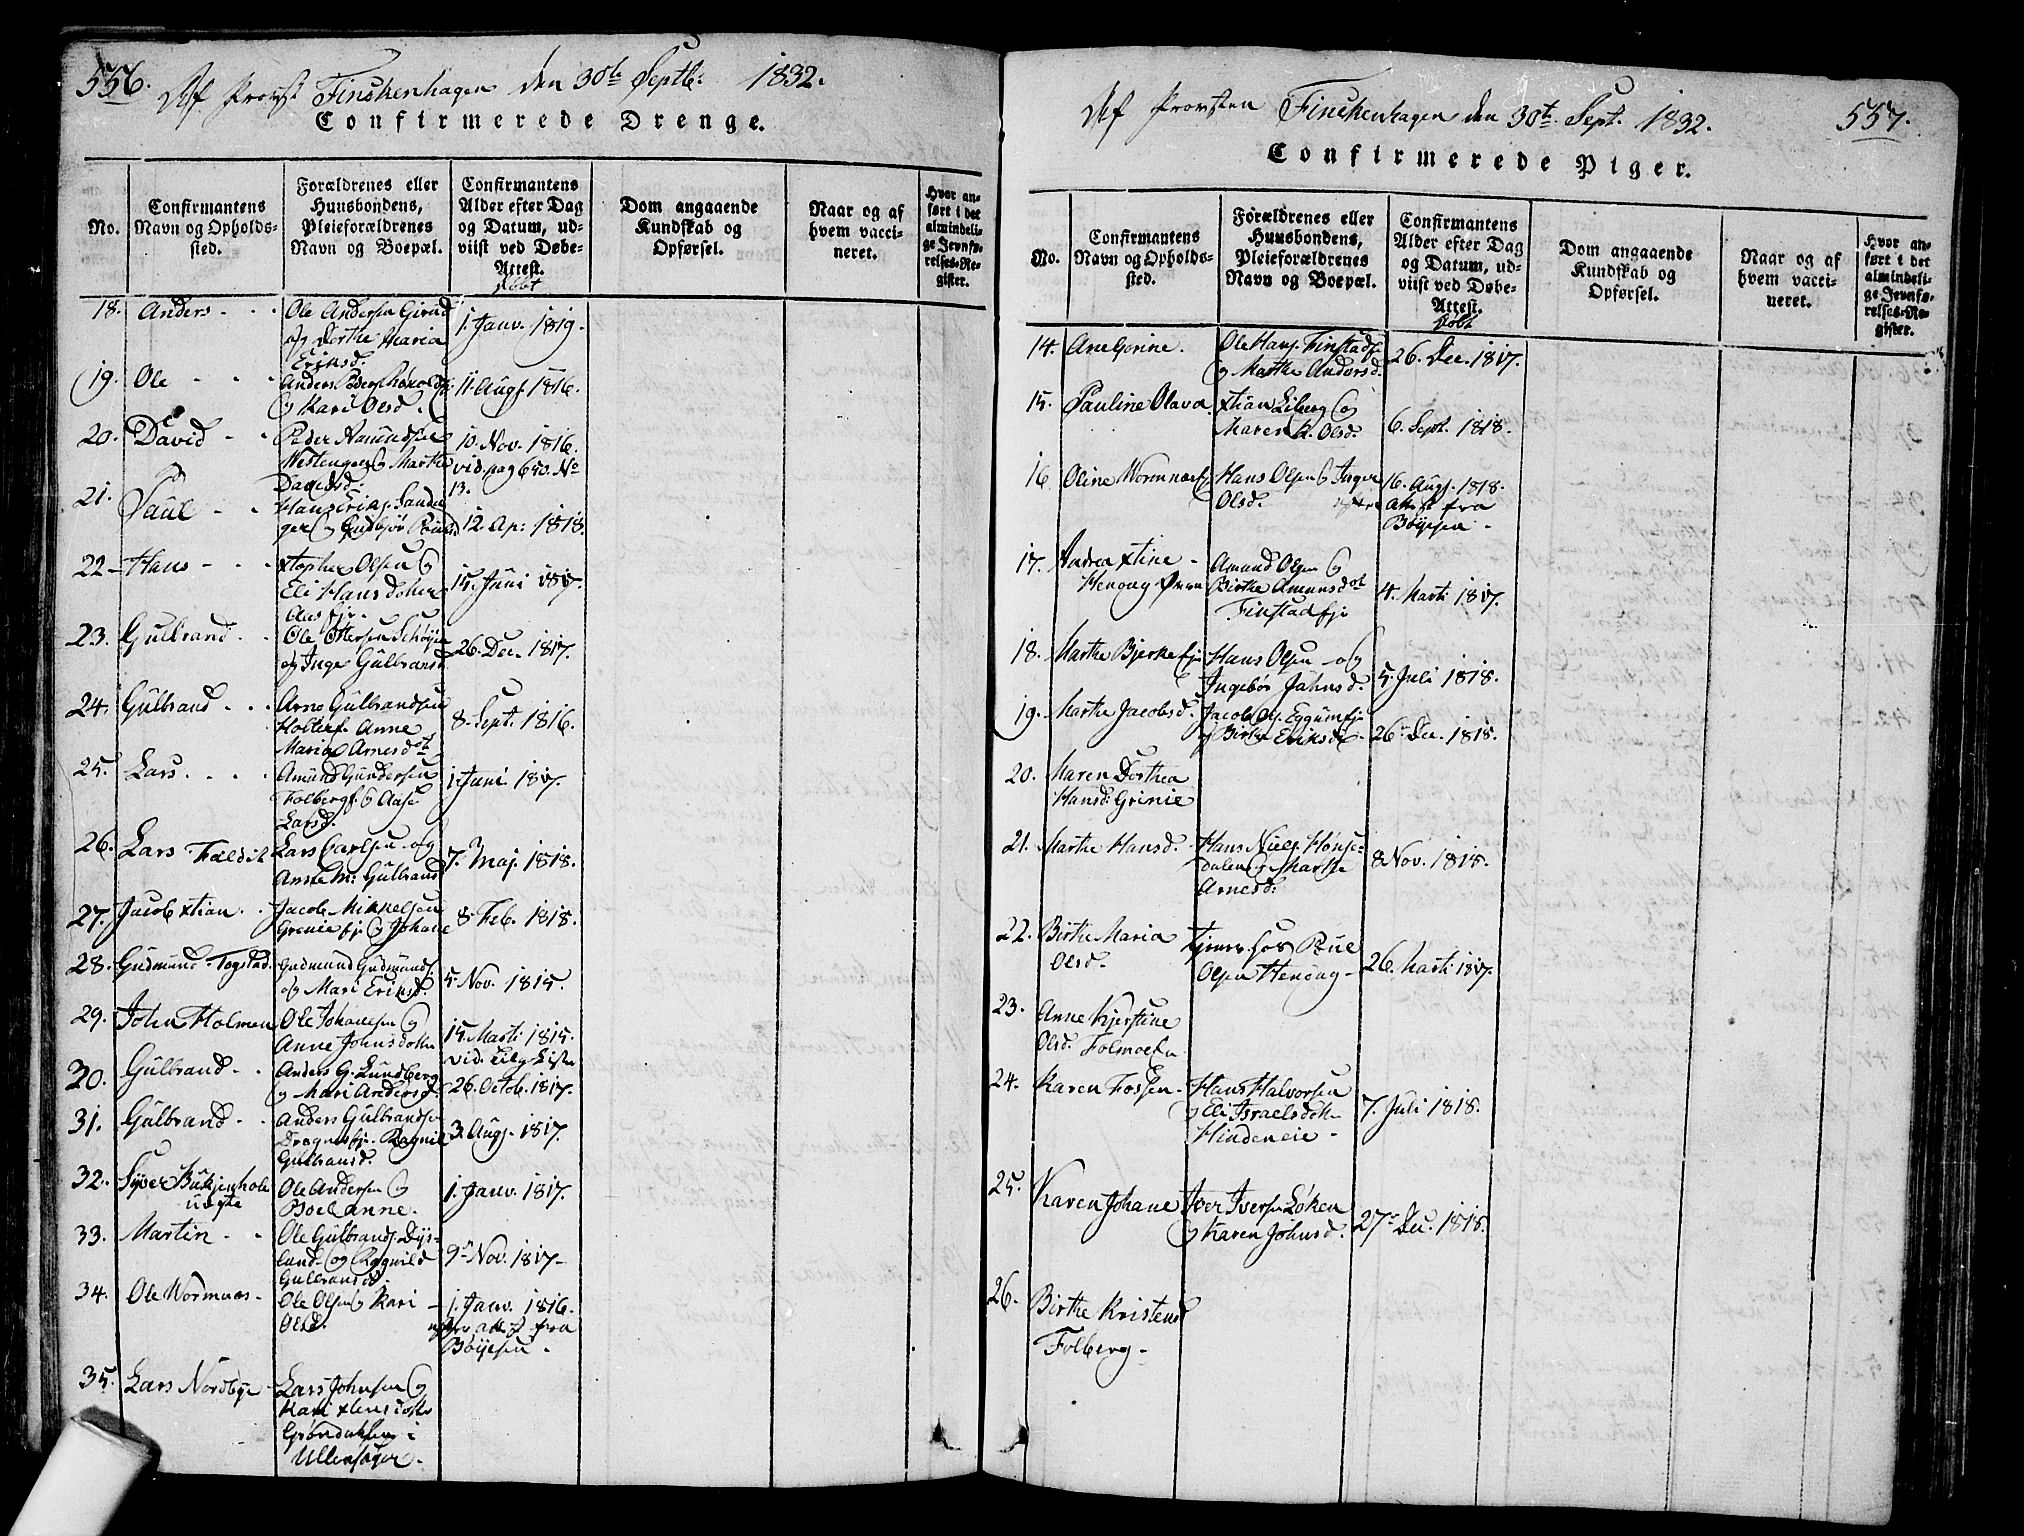 556. Af Provst Finckenhagen den 30te Septb: 1832.
Confirmerede Drenge.
No.
Confirmantens
Navn og Opholds-
sted.
Forældrenes eller
Huusbondens,
Pleieforældrenes
Navn og Boepæl.
Confirmantens
Alder efter Dag
og Datum, ud-
viist ved Døbe-
Attest.
Døbt
Dom angaaende
Kundskab og
Opførsel.
Naar og af
hvem vacci-
neret.
Hvor an-
ført i det
almindeli-
ge Jevnfø-
relses-Re-
gister.
18. Anders - - -
Ole Andersen
og Dorthe Maria
Eriksd.
1. Janv. 1819.
19. Ole - - -
Anders
og Kari Olsd.
11. Augs. 1816.
20. David - -
Peder Amundsen
Westengen og Marthe
Davidsd.
10. Nov. 1816.
vid. pag 680. No
13.
21. Paul - -
Hans Eriks.
og Gudbjør
12. Ap: 1818.
22 - Hans - - -
Xtopher Olsen og
Eli Hansdotter
15. Juni 1817.
23. Gulbrand - -
Ole Ottersen
og Inge Gulbransd
26. Dec. 1817.
24. Gulbrand - - -
Arne Gulbrandsen
Anne
Maria Arnesdot
8. Sept. 1816.
25. Lars - - - -
Amund Gundersen
Folberg og Aase
Larsd.
1. Juni 1817.
26. Lars
Lars Carlsen og
Anne M: Gulbrand
7. Maj. 1818.
27. Jacob Xtian - -
Jacob Mikkelsen
og Johane
8. Feb. 1818.
28. Gudmund Togstad.
Gudmund Gudmunds.
og Mari Eriksd.
5. Nov. 1815.
29. John Holmen
Ole Johannesen og
Anne Johnsdotter
15. Marti 1815.
vid.
30. Gulbrand - -
Anders G. Lundberg
og Mari Andersd.
26. Octob. 1817.
31. Gulbrand - -
Anders Gulbrandsen
Ragnil
Gulbransd.
3. Augs. 1817.
32. Syver
Ole Andersen og
Boel Anne.
1. Janv. 1817.
33. Martin - -
Ole Gulbrands. Dys-
land og Ragnild
Gulbransd.
9. Nov. 1817 -
34. Ole Wormnæs -
Ole Olsen og Kari
Olsd.
1. Janv. 1816.
fra
Böyesen -
35. Lars Nordbye -
Lars Johnsen og
Kari
i
Ullensager -
Af Provsten Finckenhagen den 30te Sept. 1832. 557.
Confirmerede Piger.
No.
Confirmantens
Navn og Opholds-
sted.
Forældrenes eller
Huusbondens,
Pleieforældrenes
Navn og Boepæl.
Confirmantens
Alder efter Dag
og Datum, ud-
viist ved Døbe-
Attest.
Døbt
Dom angaaende
Kundskab og
Opførsel.
Naar og af
hvem vacci-
neret.
Hvor an-
ført i det
almindeli-
ge Jevnfø-
relses-Re-
gister.
14. Ane Gorine.
Ole Hans. Finstad
og Marthe Andersd.
26. Dec. 1817.
15. Pauline Olava.
Xtian Liberg og
Maren K. Olsd.
6. Sept. 1818.
16. Oline Wormnæs
Hans Olsen og Inger
Olsd.
16. Augs. 1818.
fra
Böyesen -
17. Andrea Xtine -
Amund Olsen og
Birthe Amunsdot
Finstad
4. Marti 1817.
18. Marthe Bjerke
Hans Olsen og
Ingebör Johnsd.
5. Juli 1818.
19. Marthe Jacobsd.
Jacob Eggum
og Birthe Eriksd.
26. Dec. 1818.
20. Maren Dorthea
Hansd: Grinie
21. Marthe Hansd.
Hans Niels. Hønse-
dalen og Marthe
Arnesd:
8 Nov. 1818.
22. Birthe Maria
Olsd.
hos
Olsen Hengag -
26. Marti 1817.
23. Anne Kjerstine
Olsd.
24. Karen Fossen -
Hans Halvorsen
og Eli Israelsdotter
Hindeneie -
7. Juli 1818.
25. Karen Johane
Iver Iversen Løken
og Karen Johnsd.
27. Dec. 1818.
26. Birthe Kristensd
Folberg -